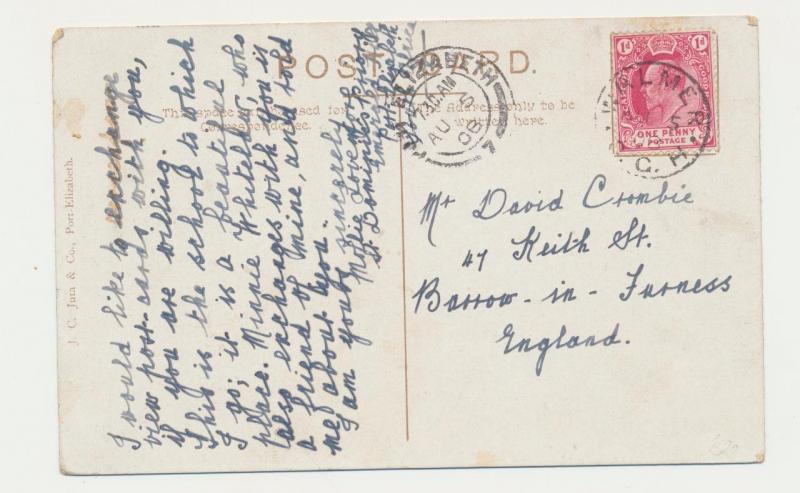 POST CARD.
This space may be used for
Correspondence.
The Address only to be
written here.
J. C. Juta & Co., Port-Elizabeth.
I would like to exchange
view post-cards with you,
if you are willing.
This is the school to which
I go; it is a beautiful
place. Minnie Whitella, who
also exchanges with you is
a friend of mine, and told
me about you.
I am yours sincerely
Mollie
St. Dominic's Priory
Port Elizabeth
Mr David Crombie
47 Keith St.
Barrow-in-Furness
England.
ELIZABETH
7 30 AM
AU 10
08
7
1d 1d
ONE PENNY
POSTAGE
WALMER
C.G.H.